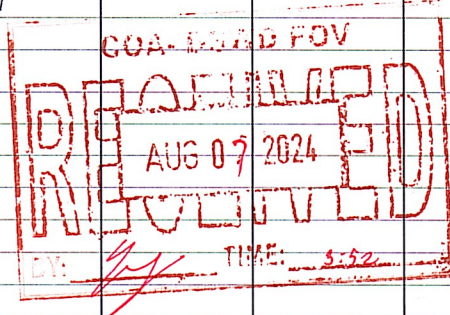 RECEIVED
AUG 07 2024
BY: TIME: 3:52